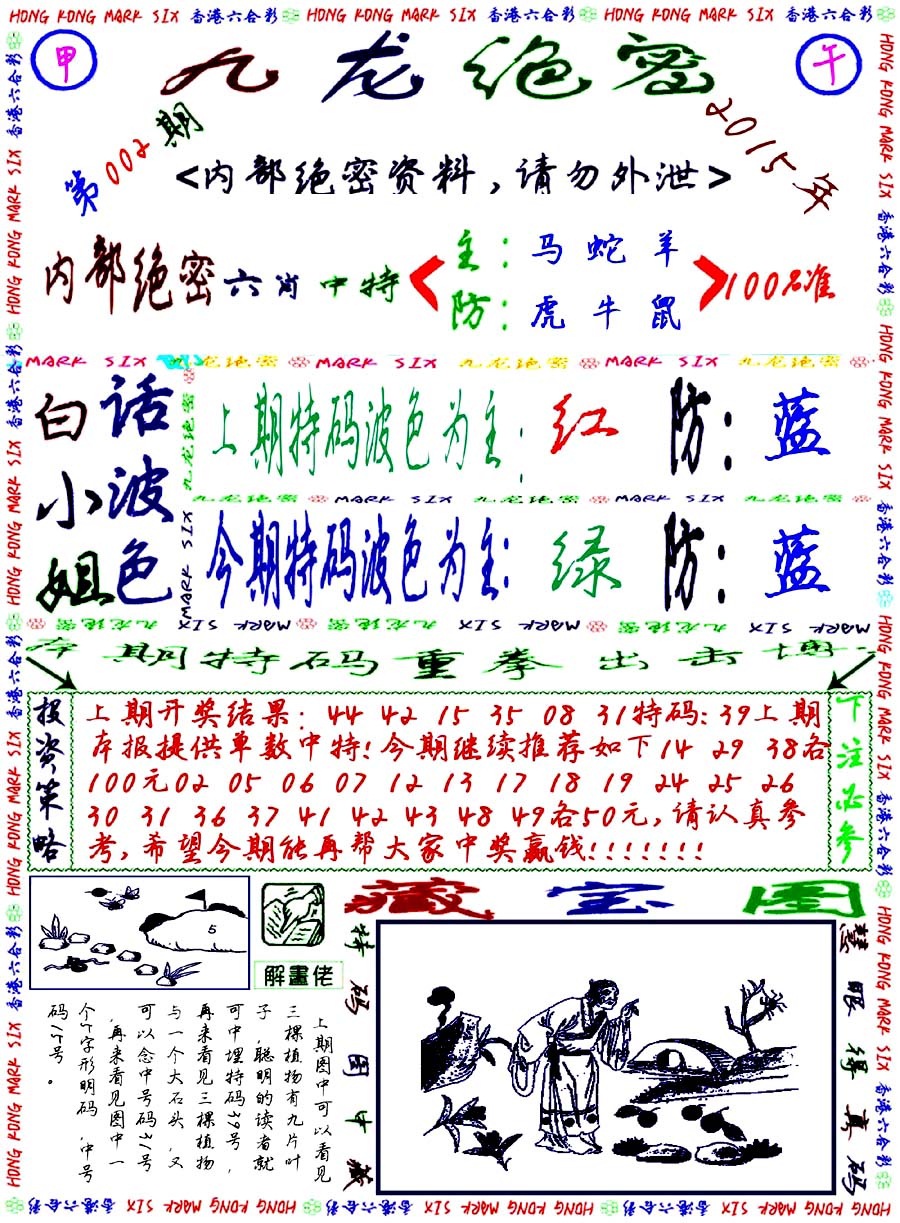 HONG KONG MARK SIX 香港六合彩 HONG KONG MARK SIX 香港六合彩 HONG KONG MARK SIX 香港六合彩
甲
九龙绝密
午
第002期
2015年
<内部绝密资料,请勿外泄>
内部绝密六肖中特
主:马 蛇 羊
防:虎 牛 鼠
100%准
MARK SIX 九龙绝密 MARK SIX 九龙绝密 MARK SIX 九龙绝密
白话小波姐色
上期特码波色为主:红 防:蓝
九龙绝密 MARK SIX 九龙绝密 MARK SIX 九龙绝密
今期特码波色为主:绿 防:蓝
本期特码重拳出击博
投资策略
上期开奖结果:44 42 15 35 08 31特码:39上期
本报提供单数中特!今期继续推荐如下14 29 38各
100元02 05 06 07 12 13 17 18 19 24 25 26
30 31 36 37 41 42 43 48 49各50元,请认真参
考,希望今期能再帮大家中奖赢钱!!!!!!!
下注必参
5
解畫佬
藏宝图
特码图中藏
慧眼得真码
上期图中可以看见
三棵植物有九片叶
子,聪明的读者就
可中埋特码39号,
再来看见三棵植物
与一个大石头,又
可以念中号码31号
,再来看见图中一
个个字形明码,中号
码15号。